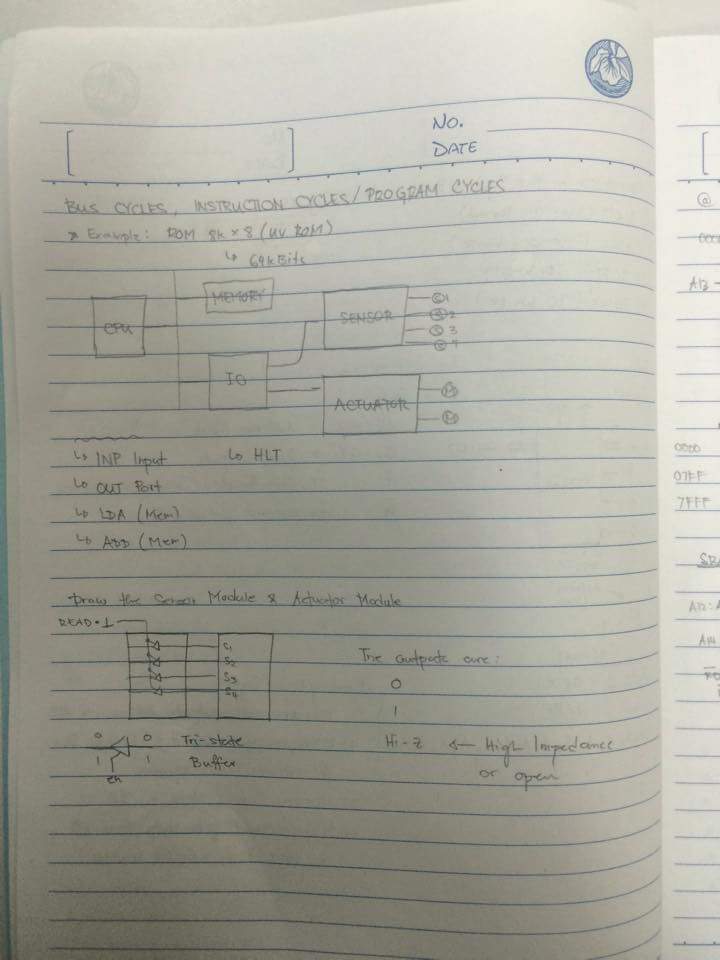 NO.
DATE
BUS CYCLES, INSTRUCTION CYCLES/PROGRAM CYCLES
* Example: ROM 8k x 8 (UV ROM)
↳ 64k Bits
MEMORY
CPU
SENSOR
S1
S2
S3
S4
IO
ACTUATOR
↳ INP Input ↳ HLT
↳ OUT Port
↳ LDA (Mem)
↳ ADD (Mem)
Draw the Sensor Module & Actuator Module
READ.1
S1
S2
S3
S4
The outputs are:
0
1
Hi-Z ← High Impedance
or open
0 0 Tri-state
1 1 Buffer
en
@
A13 -
0000
07FF
7FFF
A14